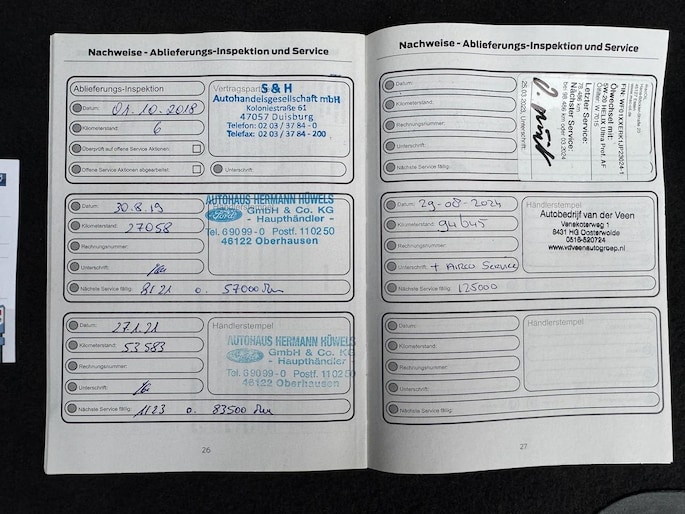 Nachweise - Ablieferungs-Inspektion und Service
Ablieferungs-Inspektion
Datum: 01.10.2018
Kilometerstand: 6
Überprüft auf offene Service Aktionen:
Offene Service Aktionen abgearbeitet:
Vertragspart
S & H
Autohandelsgesellschaft mbH
Koloniestraße 61
47057 Duisburg
Telefon: 02 03 / 37 84 - 0
Telefax: 02 03 / 37 84 - 200
Unterschrift:
Datum: 30.8.19
Kilometerstand: 27058
Rechnungsnummer:
Unterschrift:
Nächste Service fällig: 8/21 o. 57000
AUTOHAUS HERMANN HÜWELS
Ford
GmbH & Co. KG
- Haupthändler -
Tel. 6 90 99 - 0 Postf. 11 02 50
46122 Oberhausen
Datum: 27.1.21
Kilometerstand: 53583
Rechnungsnummer:
Unterschrift:
Nächste Service fällig: 1/23 o. 83500
Händlerstempel:
AUTOHAUS HERMANN HÜWELS
GmbH & Co. KG
- Haupthändler -
Tel. 6 90 99 - 0 Postf. 11 02 50
46122 Oberhausen
26
Nachweise - Ablieferungs-Inspektion und Service
Datum:
Kilometerstand:
Rechnungsnummer:
Unterschrift:
Nächste Service fällig:
FIN: WF01XXERK1JP23024-1
Ölwechsel mit:
5W-20 HELIX Ultra Prof. AF
Ölfilter: W 7015
Letzter Service:
78.486 km
Nächster Service:
bei 98.486 km oder 03.2024
25.03.2023, Duisburg
Datum: 29-08-2024
Kilometerstand: 94645
Rechnungsnummer:
Unterschrift: + AIRCO SERVICE
Nächste Service fällig: 125000
Händlerstempel:
Autobedrijf van der Veen
Venekoterweg 1
8431 HG Oosterwolde
0516-820724
www.vdveenautogroep.nl
Datum:
Kilometerstand:
Rechnungsnummer:
Unterschrift:
Nächste Service fällig:
Händlerstempel:
27